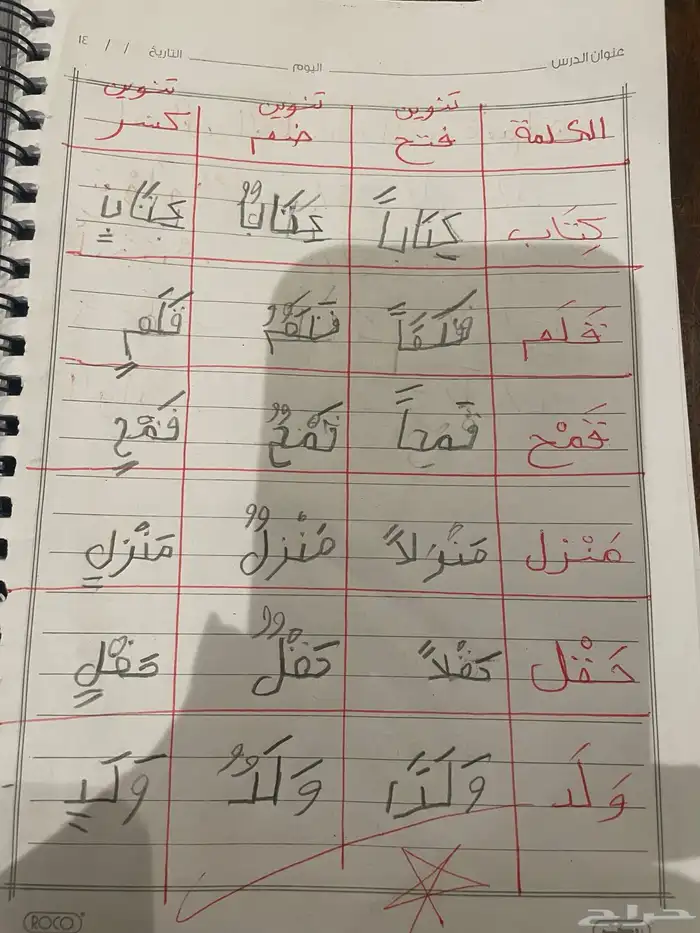 عنوان الدرس اليوم التاريخ / / ١٤
الكلمة تنوين فتح تنوين ضم تنوين كسر
كِتَاب كِتَاباً كِتَابٌ كِتَابٍ
قَلَم قَلَماً قَلَمٌ قَلَمٍ
قَمْح قَمْحاً قَمْحٌ قَمْحٍ
مَنْزِل مَنْزِلاً مَنْزِلٌ مَنْزِلٍ
حَقْل حَقْلاً حَقْلٌ حَقْلٍ
وَلَد وَلَداً وَلَدٌ وَلَدٍ
ROCO
حراج